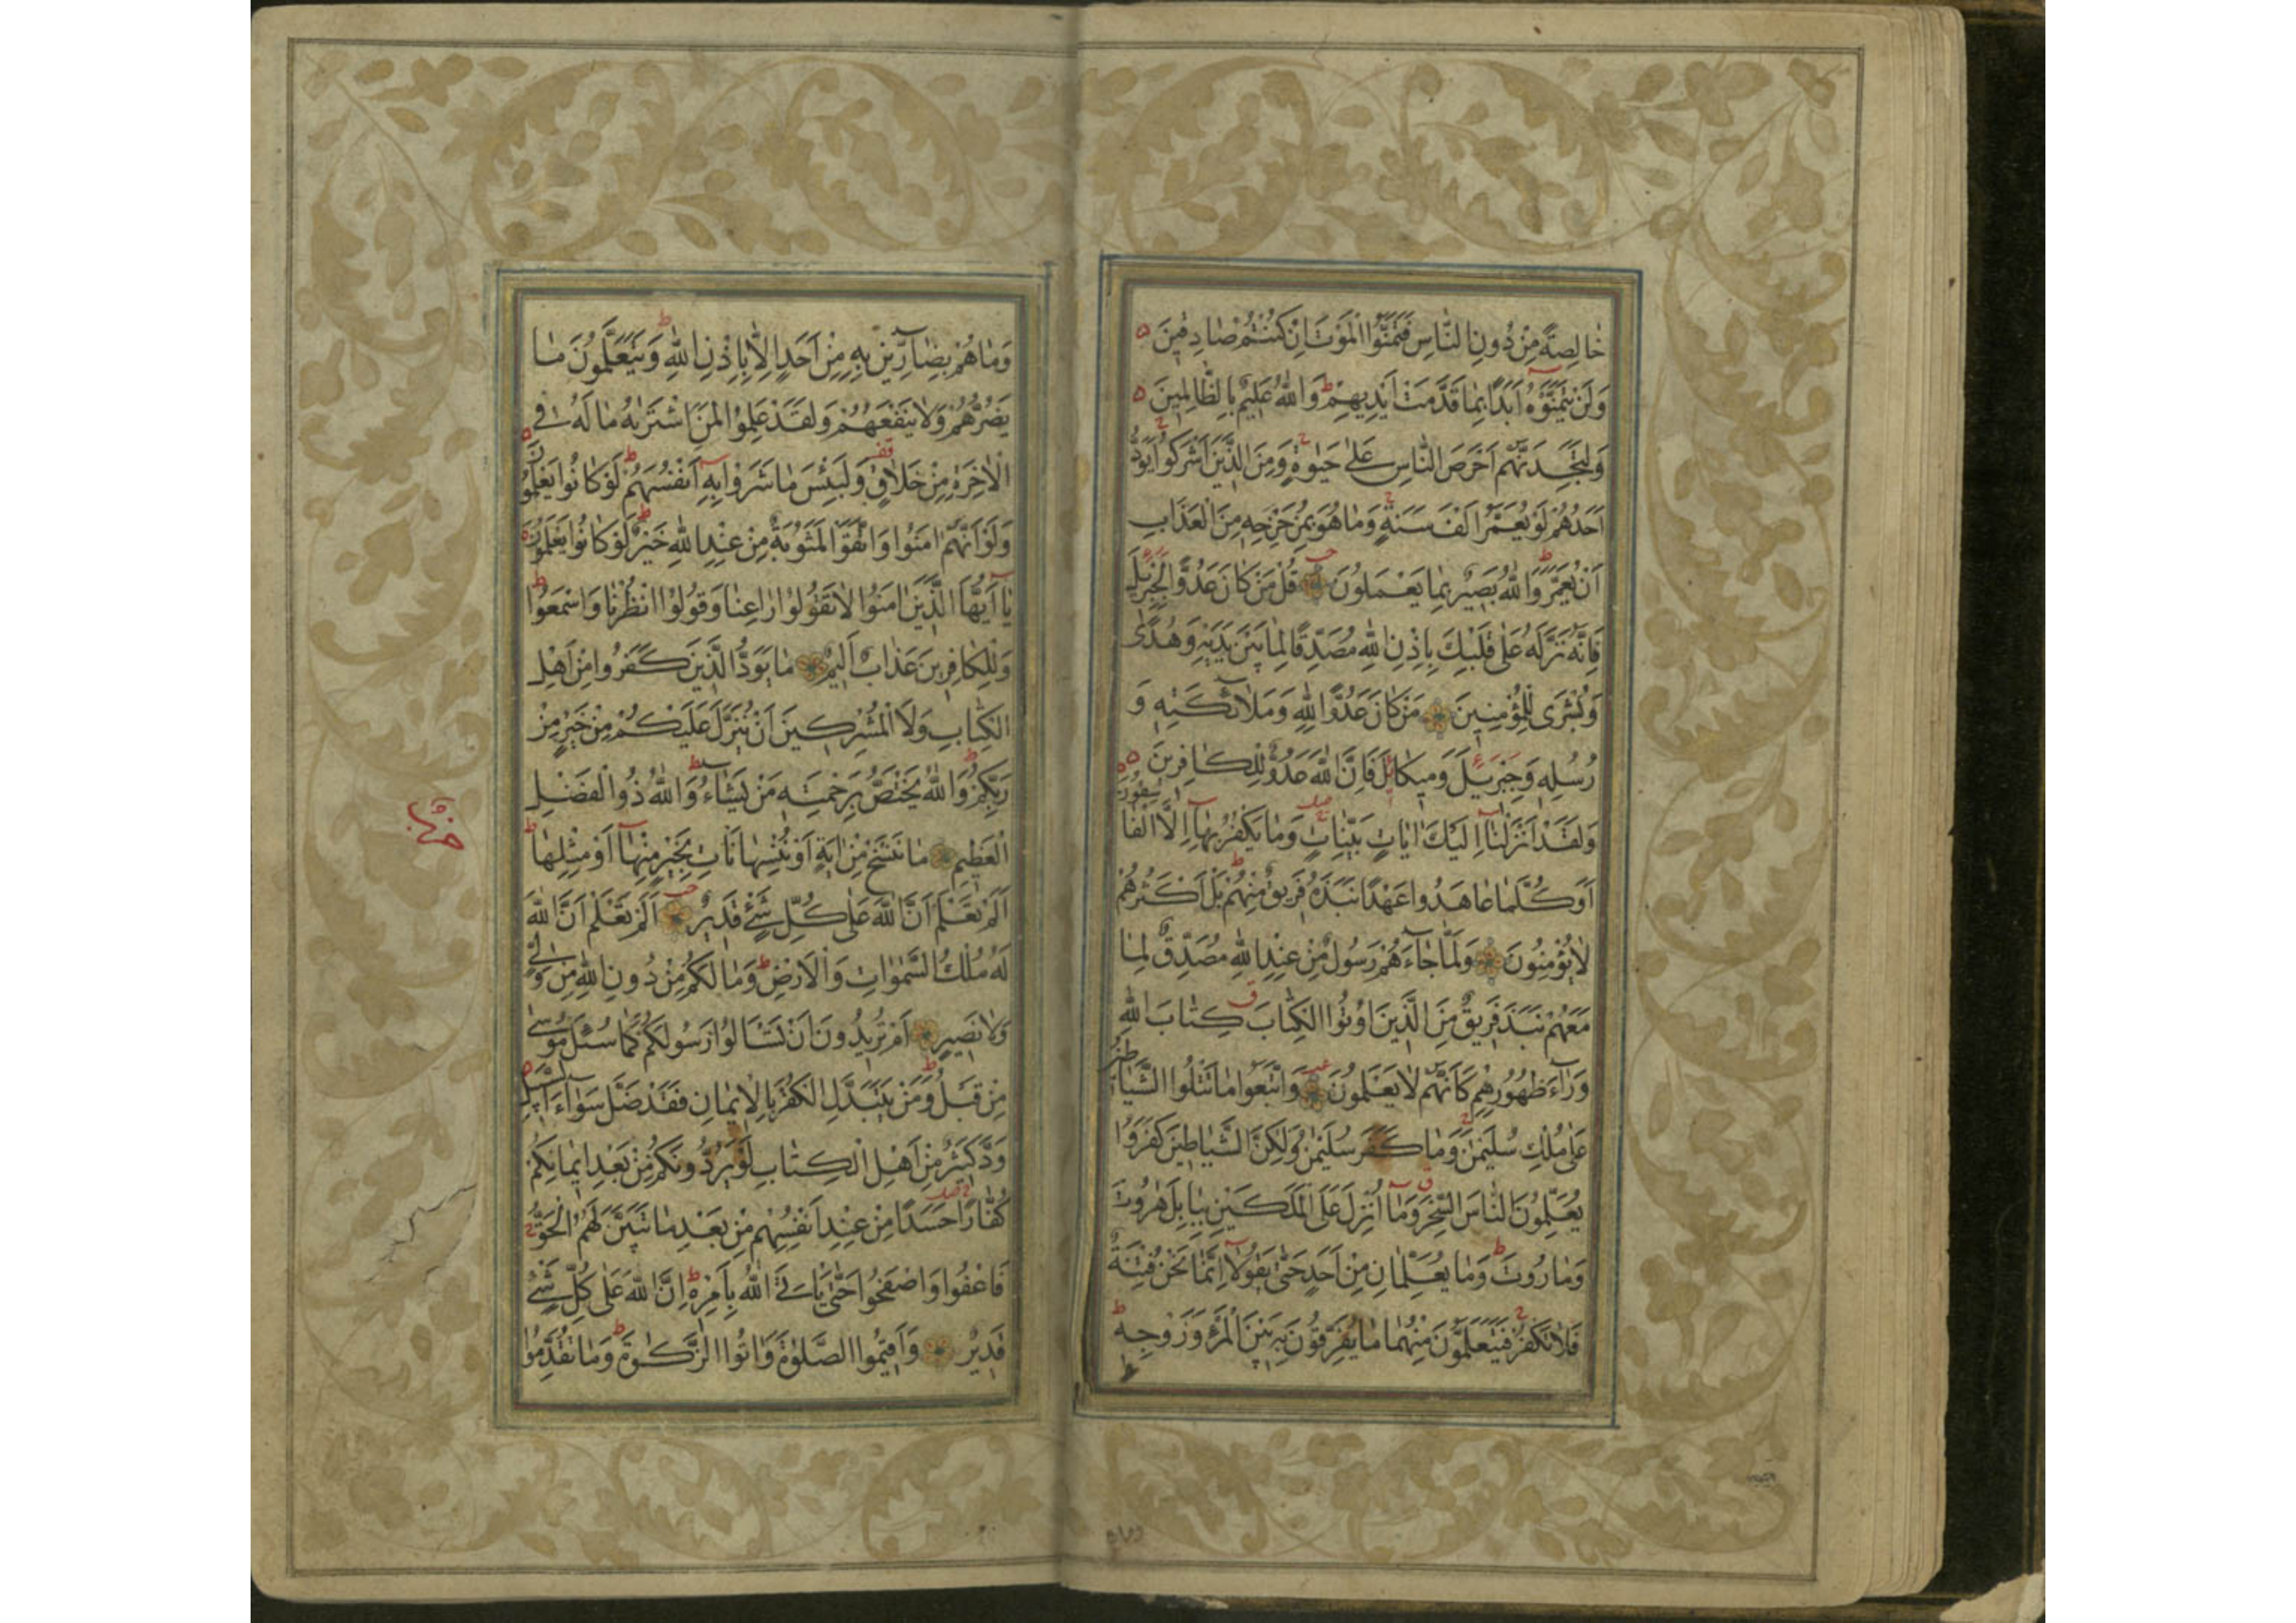 خٰالِصَةً مِنْ دُونِ النّٰاسِ فَتَمَنَّوُا الْمَوْتَ اِنْ كُنْتُمْ صٰادِقٖينَ
وَلَنْ يَتَمَنَّوْهُ اَبَدًا بِمٰا قَدَّمَتْ اَيْدٖيهِمْ وَاللّٰهُ عَلٖيمٌ بِالظّٰالِمٖينَ
وَلَتَجِدَنَّهُمْ اَحْرَصَ النّٰاسِ عَلٰى حَيٰوةٍ وَمِنَ الَّذٖينَ اَشْرَكُوا يَوَدُّ
اَحَدُهُمْ لَوْ يُعَمَّرُ اَلْفَ سَنَةٍ وَمٰا هُوَ بِمُزَحْزِحِهٖ مِنَ الْعَذٰابِ
اَنْ يُعَمَّرَ وَاللّٰهُ بَصٖيرٌ بِمٰا يَعْمَلُونَ قُلْ مَنْ كٰانَ عَدُوًّا لِجِبْرٖيلَ
فَاِنَّهُ نَزَّلَهُ عَلٰى قَلْبِكَ بِاِذْنِ اللّٰهِ مُصَدِّقًا لِمٰا بَيْنَ يَدَيْهِ وَهُدًى
وَبُشْرٰى لِلْمُؤْمِنٖينَ مَنْ كٰانَ عَدُوًّا لِلّٰهِ وَمَلٰٓائِكَتِهٖ وَ
رُسُلِهٖ وَجِبْرٖيلَ وَمٖيكٰالَ فَاِنَّ اللّٰهَ عَدُوٌّ لِلْكٰافِرٖينَ
وَلَقَدْ اَنْزَلْنٰٓا اِلَيْكَ اٰيٰاتٍ بَيِّنٰاتٍ وَمٰا يَكْفُرُ بِهٰٓا اِلَّا الْفٰاسِقُونَ
اَوَكُلَّمٰا عٰاهَدُوا عَهْدًا نَبَذَهُ فَرٖيقٌ مِنْهُمْ بَلْ اَكْثَرُهُمْ
لٰا يُؤْمِنُونَ وَلَمّٰا جٰٓاءَهُمْ رَسُولٌ مِنْ عِنْدِ اللّٰهِ مُصَدِّقٌ لِمٰا
مَعَهُمْ نَبَذَ فَرٖيقٌ مِنَ الَّذٖينَ اُوتُوا الْكِتٰابَ كِتٰابَ اللّٰهِ
وَرٰٓاءَ ظُهُورِهِمْ كَاَنَّهُمْ لٰا يَعْلَمُونَ وَاتَّبَعُوا مٰا تَتْلُوا الشَّيٰاطٖينُ
عَلٰى مُلْكِ سُلَيْمٰنَ وَمٰا كَفَرَ سُلَيْمٰنُ وَلٰكِنَّ الشَّيٰاطٖينَ كَفَرُوا
يُعَلِّمُونَ النّٰاسَ السِّحْرَ وَمٰٓا اُنْزِلَ عَلَى الْمَلَكَيْنِ بِبٰابِلَ هٰرُوتَ
وَمٰارُوتَ وَمٰا يُعَلِّمٰانِ مِنْ اَحَدٍ حَتّٰى يَقُولٰٓا اِنَّمٰا نَحْنُ فِتْنَةٌ
فَلٰا تَكْفُرْ فَيَتَعَلَّمُونَ مِنْهُمٰا مٰا يُفَرِّقُونَ بِهٖ بَيْنَ الْمَرْءِ وَزَوْجِهٖ
وَمٰا هُمْ بِضٰٓارّٖينَ بِهٖ مِنْ اَحَدٍ اِلّٰا بِاِذْنِ اللّٰهِ وَيَتَعَلَّمُونَ مٰا
يَضُرُّهُمْ وَلٰا يَنْفَعُهُمْ وَلَقَدْ عَلِمُوا لَمَنِ اشْتَرٰيهُ مٰا لَهُ فِي
الْاٰخِرَةِ مِنْ خَلٰاقٍ وَلَبِئْسَ مٰا شَرَوْا بِهٖٓ اَنْفُسَهُمْ لَوْ كٰانُوا يَعْلَمُونَ
وَلَوْ اَنَّهُمْ اٰمَنُوا وَاتَّقَوْا لَمَثُوبَةٌ مِنْ عِنْدِ اللّٰهِ خَيْرٌ لَوْ كٰانُوا يَعْلَمُونَ
يٰٓا اَيُّهَا الَّذٖينَ اٰمَنُوا لٰا تَقُولُوا رٰاعِنٰا وَقُولُوا انْظُرْنٰا وَاسْمَعُوا
وَلِلْكٰافِرٖينَ عَذٰابٌ اَلٖيمٌ مٰا يَوَدُّ الَّذٖينَ كَفَرُوا مِنْ اَهْلِ
الْكِتٰابِ وَلَا الْمُشْرِكٖينَ اَنْ يُنَزَّلَ عَلَيْكُمْ مِنْ خَيْرٍ مِنْ
رَبِّكُمْ وَاللّٰهُ يَخْتَصُّ بِرَحْمَتِهٖ مَنْ يَشٰٓاءُ وَاللّٰهُ ذُو الْفَضْلِ
الْعَظٖيمِ مٰا نَنْسَخْ مِنْ اٰيَةٍ اَوْ نُنْسِهٰا نَاْتِ بِخَيْرٍ مِنْهٰٓا اَوْ مِثْلِهٰا
اَلَمْ تَعْلَمْ اَنَّ اللّٰهَ عَلٰى كُلِّ شَيْءٍ قَدٖيرٌ اَلَمْ تَعْلَمْ اَنَّ اللّٰهَ
لَهُ مُلْكُ السَّمٰوٰاتِ وَالْاَرْضِ وَمٰا لَكُمْ مِنْ دُونِ اللّٰهِ مِنْ وَلِيٍّ
وَلٰا نَصٖيرٍ اَمْ تُرٖيدُونَ اَنْ تَسْـَٔالُوا رَسُولَكُمْ كَمٰا سُئِلَ مُوسٰى
مِنْ قَبْلُ وَمَنْ يَتَبَدَّلِ الْكُفْرَ بِالْاٖيمٰانِ فَقَدْ ضَلَّ سَوٰٓاءَ السَّبٖيلِ
وَدَّ كَثٖيرٌ مِنْ اَهْلِ الْكِتٰابِ لَوْ يَرُدُّونَكُمْ مِنْ بَعْدِ اٖيمٰانِكُمْ
كُفّٰارًا حَسَدًا مِنْ عِنْدِ اَنْفُسِهِمْ مِنْ بَعْدِ مٰا تَبَيَّنَ لَهُمُ الْحَقُّ
فَاعْفُوا وَاصْفَحُوا حَتّٰى يَاْتِيَ اللّٰهُ بِاَمْرِهٖ اِنَّ اللّٰهَ عَلٰى كُلِّ شَيْءٍ
قَدٖيرٌ وَاَقٖيمُوا الصَّلٰوةَ وَاٰتُوا الزَّكٰوةَ وَمٰا تُقَدِّمُوا